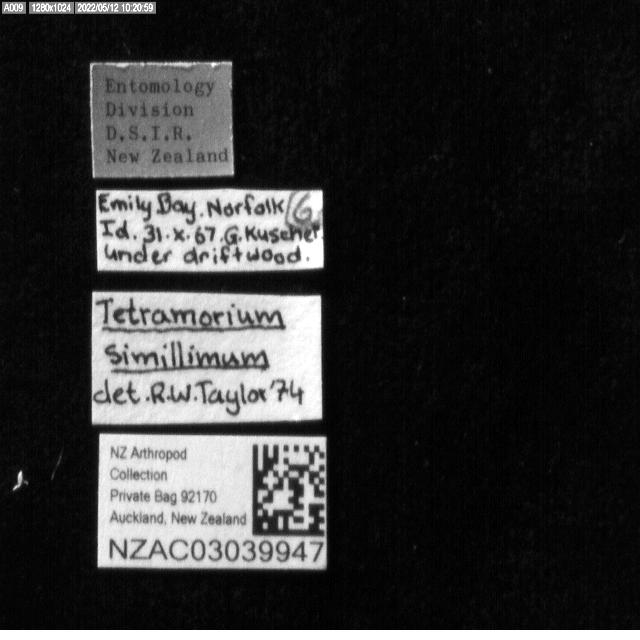 A009 1280x1024 2022/05/12 10:20:59
Entomology
Division
D.S.I.R.
New Zealand
Emily Bay. Norfolk 6
Id. 31.x.67.G.Kuschel.
under driftwood.
Tetramorium
simillimum
det. R.W. Taylor '74
NZ Arthropod
Collection
Private Bag 92170
Auckland, New Zealand
NZAC03039947